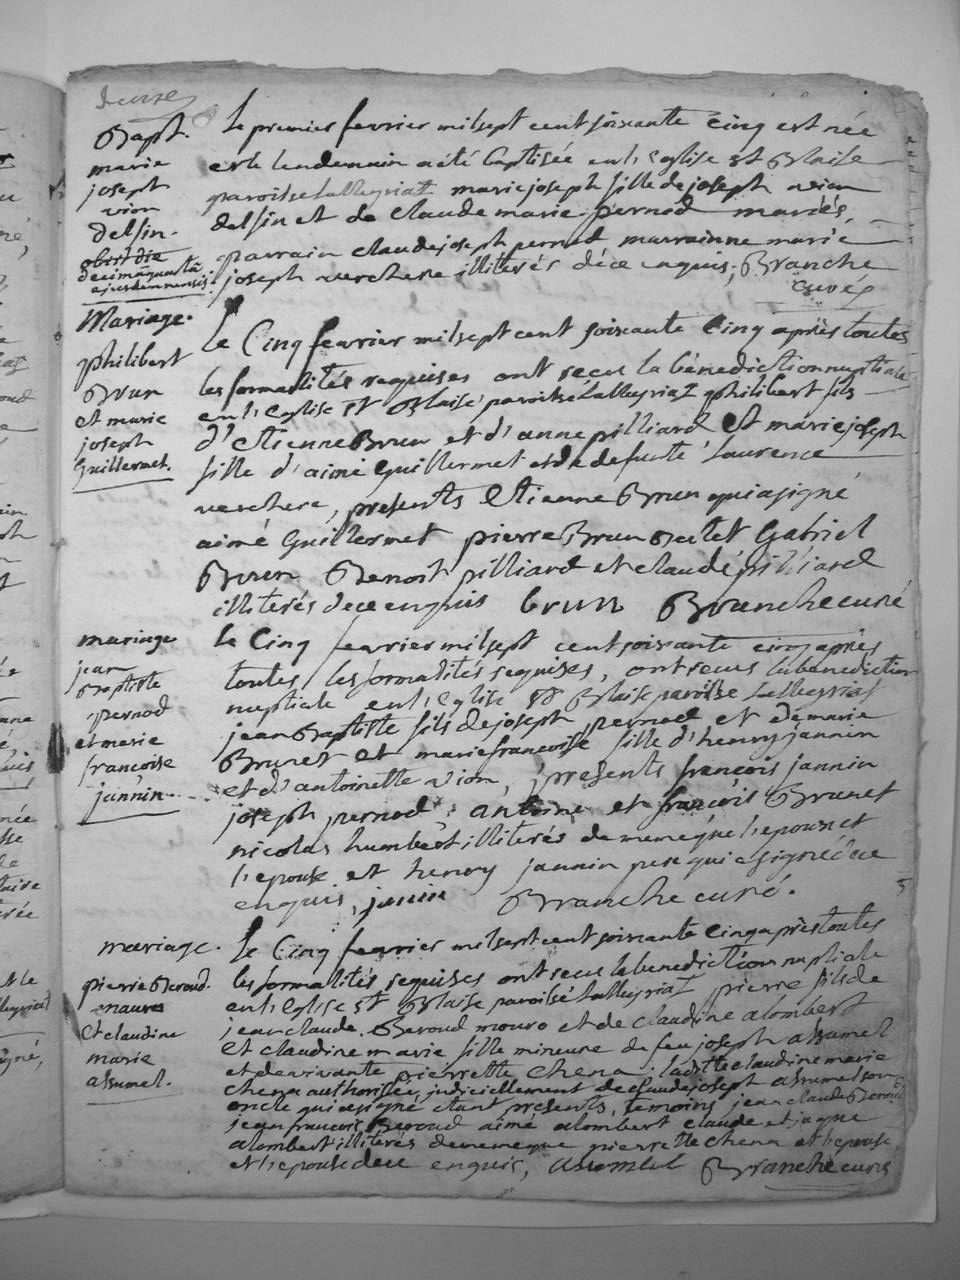 Bapt.
marie
joseph
vion
delsin.
obiit die
decimâ quartâ
ejusdem mensis.
le premier fevrier mil sept cent soixante cinq est née
et le lendemain a été baptisée en l'eglise st Blaise
paroisse Lalleyriat marie joseph fille de joseph vion
delsin et de claude marie pernod mariés,
parrain claude joseph pernod, marrainne marie
joseph verchere illiterés de ce enquis; Branche
curé
Mariage.
philibert
Brun
et marie
joseph
Guillermet.
Le Cinq fevrier mil sept cent soixante Cinq après toutes
les formalités requises ont recus la bénediction nuptiale
en l'eglise st Blaise paroisse Lalleyriat philibert fils
d'Etienne Brun et d'anne pilliard Et marie joseph
fille d'aimé Guillermet et de defunte Laurence
verchere, presents Etienne Brun qui a signé
aimé Guillermet pierre Brun Gabriel
Brun Benoit pilliard et claude pilliard
illiterés de ce enquis brun Branche curé
mariage
jean
Baptiste
pernod
et marie
francoise
jannin.
le Cinq fevrier mil sept cent soixante cinq après
toutes les formalités requises, ont recus la benediction
nuptiale en l'eglise st Blaise paroisse Lalleyriat
jean Baptiste fils de joseph pernod et de marie
Brunet et marie francoise fille d'henry jannin
et d'antoinette vion, presents françois jannin
joseph pernod, antoine et françois Brunet
nicolas humbert illiterés de meme que l'epoux et
l'epouse et henry jannin pere qui a signé de ce
enquis, janin Branche curé.
mariage.
pierre Beroud
mauro
Et claudine
marie
assumel.
Le Cinq fevrier mil sept cent soixante Cinq après toutes
les formalités requises ont recus la benediction nuptiale
en l'eglise st Blaise paroisse Lalleyriat pierre fils de
jean claude Beroud mouro et de claudine alombert
Et claudine marie fille mineure de feu joseph assumel
et de vivante pierrette chena. ladite claudine marie
chena authorisée judiciellement de claude joseph assumel son
oncle qui a signé etant presents, temoins jean claude Beroud
jean francois Beroud aimé alombert claude et jaque
alombert illiterés de meme que pierrette chena et l'epoux
et l'epouse de ce enquis, assumel Branche curé